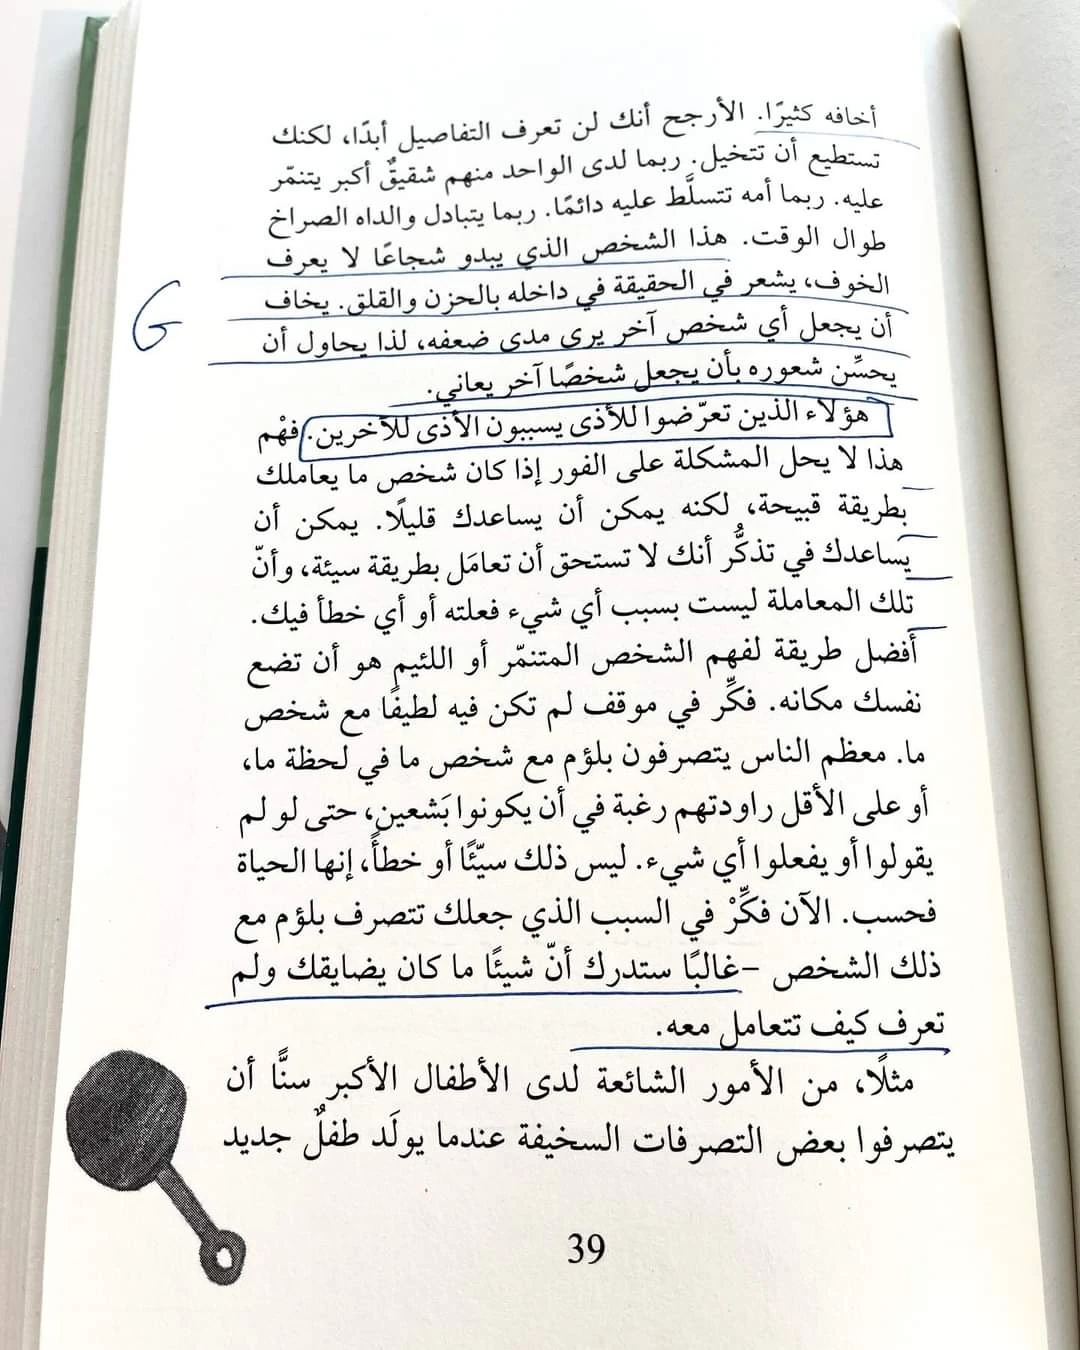 أخافه كثيرًا. الأرجح أنك لن تعرف التفاصيل أبدًا، لكنك
تستطيع أن تتخيل. ربما لدى الواحد منهم شقيقٌ أكبر يتنمّر
عليه. ربما أمه تتسلَّط عليه دائمًا. ربما يتبادل والداه الصراخ
طوال الوقت. هذا الشخص الذي يبدو شجاعًا لا يعرف
الخوف، يشعر في الحقيقة في داخله بالحزن والقلق. يخاف
أن يجعل أي شخص آخر يرى مدى ضعفه، لذا يحاول أن
يحسِّن شعوره بأن يجعل شخصًا آخر يعاني.
هؤلاء الذين تعرّضوا للأذى يسببون الأذى للآخرين. فهْم
هذا لا يحل المشكلة على الفور إذا كان شخص ما يعاملك
بطريقة قبيحة، لكنه يمكن أن يساعدك قليلًا. يمكن أن
يساعدك في تذكُّر أنك لا تستحق أن تعامَل بطريقة سيئة، وأنّ
تلك المعاملة ليست بسبب أي شيء فعلته أو أي خطأ فيك.
أفضل طريقة لفهم الشخص المتنمّر أو اللئيم هو أن تضع
نفسك مكانه. فكِّر في موقف لم تكن فيه لطيفًا مع شخص
ما. معظم الناس يتصرفون بلؤم مع شخص ما في لحظة ما،
أو على الأقل راودتهم رغبة في أن يكونوا بَشعين، حتى لو لم
يقولوا أو يفعلوا أي شيء. ليس ذلك سيّئًا أو خطأً، إنها الحياة
فحسب. الآن فكِّرْ في السبب الذي جعلك تتصرف بلؤم مع
ذلك الشخص –غالبًا ستدرك أنّ شيئًا ما كان يضايقك ولم
تعرف كيف تتعامل معه.
مثلًا، من الأمور الشائعة لدى الأطفال الأكبر سنًّا أن
يتصرفوا بعض التصرفات السخيفة عندما يولَد طفلٌ جديد
39